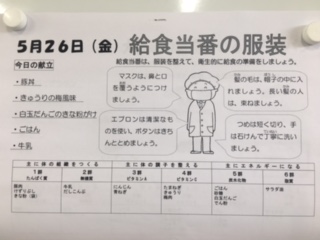 5月26日（金） 給食当番の服装
給食当番は、服装を整えて、衛生的に給食の準備をしましょう。
今日の献立
・豚丼
・きゅうりの梅風味
・白玉だんごのきな粉がけ
・ごはん
・牛乳
マスクは、鼻と口
を覆うようにつけ
ましょう。
髪の毛は、帽子の中に入
れましょう。長い髪の人
は、束ねましょう。
エプロンは清潔なも
のを使い、ボタンはきち
んととめましょう。
つめは短く切り、手
は石けんで丁寧に洗い
ましょう。
主に体の組織をつくる 主に体の調子を整える 主にエネルギーになる
1群 2群 3群 4群 5群 6群
たんぱく質 無機質 ビタミンA ビタミンC 炭水化物 脂質
豚肉 牛乳 にんじん たまねぎ ごはん サラダ油
けずりぶし だしこんぶ 青ねぎ きゅうり 砂糖
きな粉 白玉だんご
でん粉